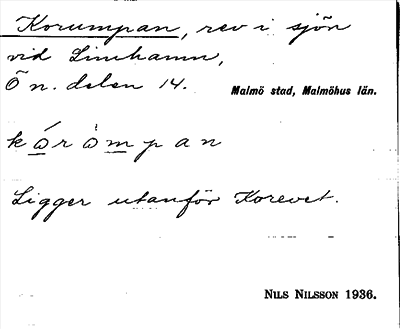 Korumpan, rev i sjön
vid Limhamn,
Ö n. delen 14.
Malmö stad, Malmöhus län.
kóròmpan
Ligger utanför Korevet.
Nils Nilsson 1936.